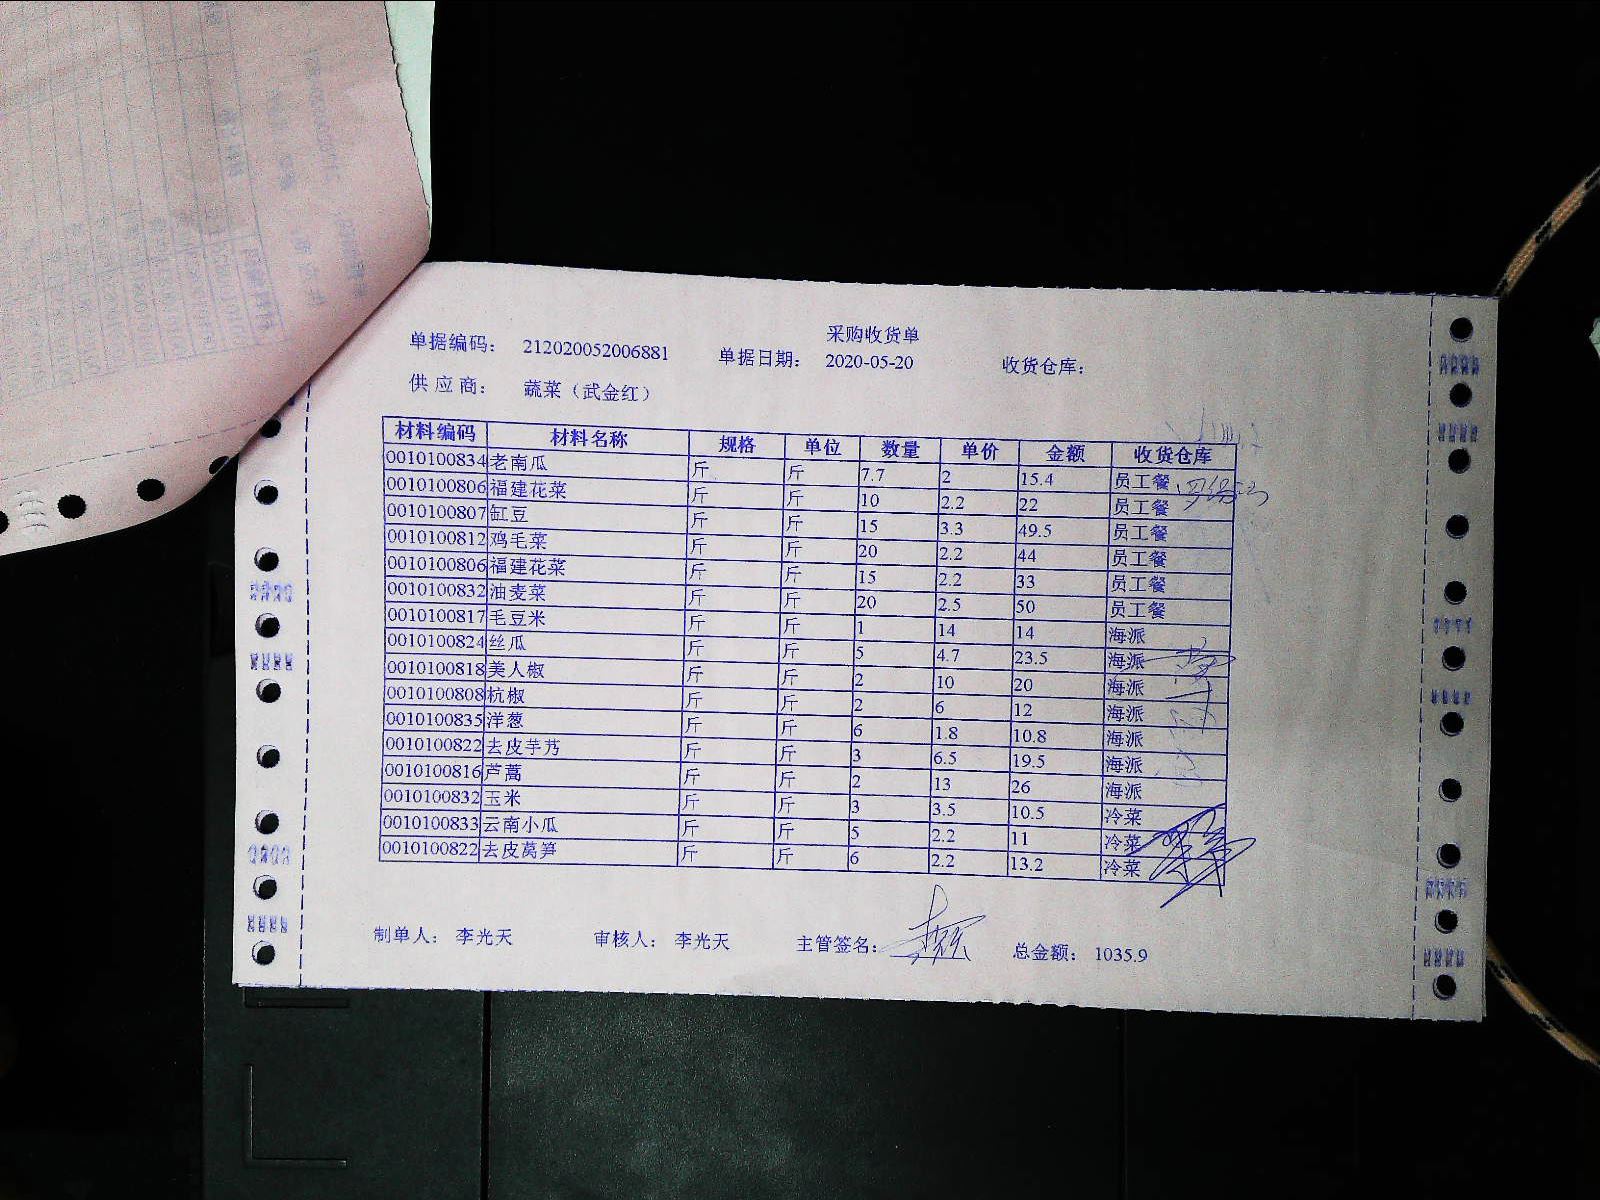 采购收货单
单据编码： 212020052006881 单据日期： 2020-05-20 收货仓库：
供 应 商： 蔬菜（武金红）
材料编码 材料名称 规格 单位 数量 单价 金额 收货仓库
0010100834 老南瓜 斤 斤 7.7 2 15.4 员工餐
0010100806 福建花菜 斤 斤 10 2.2 22 员工餐
0010100807 缸豆 斤 斤 15 3.3 49.5 员工餐
0010100812 鸡毛菜 斤 斤 20 2.2 44 员工餐
0010100806 福建花菜 斤 斤 15 2.2 33 员工餐
0010100832 油麦菜 斤 斤 20 2.5 50 员工餐
0010100817 毛豆米 斤 斤 1 14 14 海派
0010100824 丝瓜 斤 斤 5 4.7 23.5 海派
0010100818 美人椒 斤 斤 2 10 20 海派
0010100808 杭椒 斤 斤 2 6 12 海派
0010100835 洋葱 斤 斤 6 1.8 10.8 海派
0010100822 去皮芋艿 斤 斤 3 6.5 19.5 海派
0010100816 芦蒿 斤 斤 2 13 26 海派
0010100832 玉米 斤 斤 3 3.5 10.5 冷菜
0010100833 云南小瓜 斤 斤 5 2.2 11 冷菜
0010100822 去皮莴笋 斤 斤 6 2.2 13.2 冷菜
制单人： 李光天 审核人： 李光天 主管签名： 总金额： 1035.9